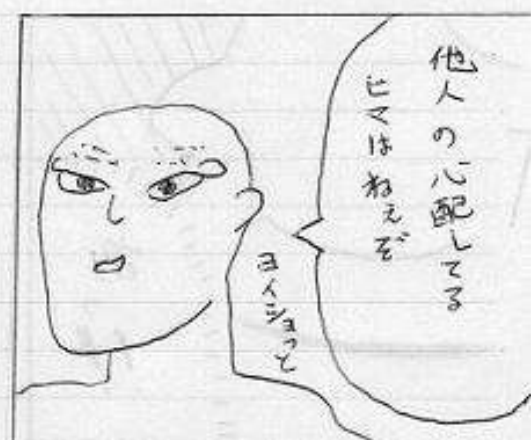 他人の心配してる
ヒマはねぇぞ
ヨイショっと